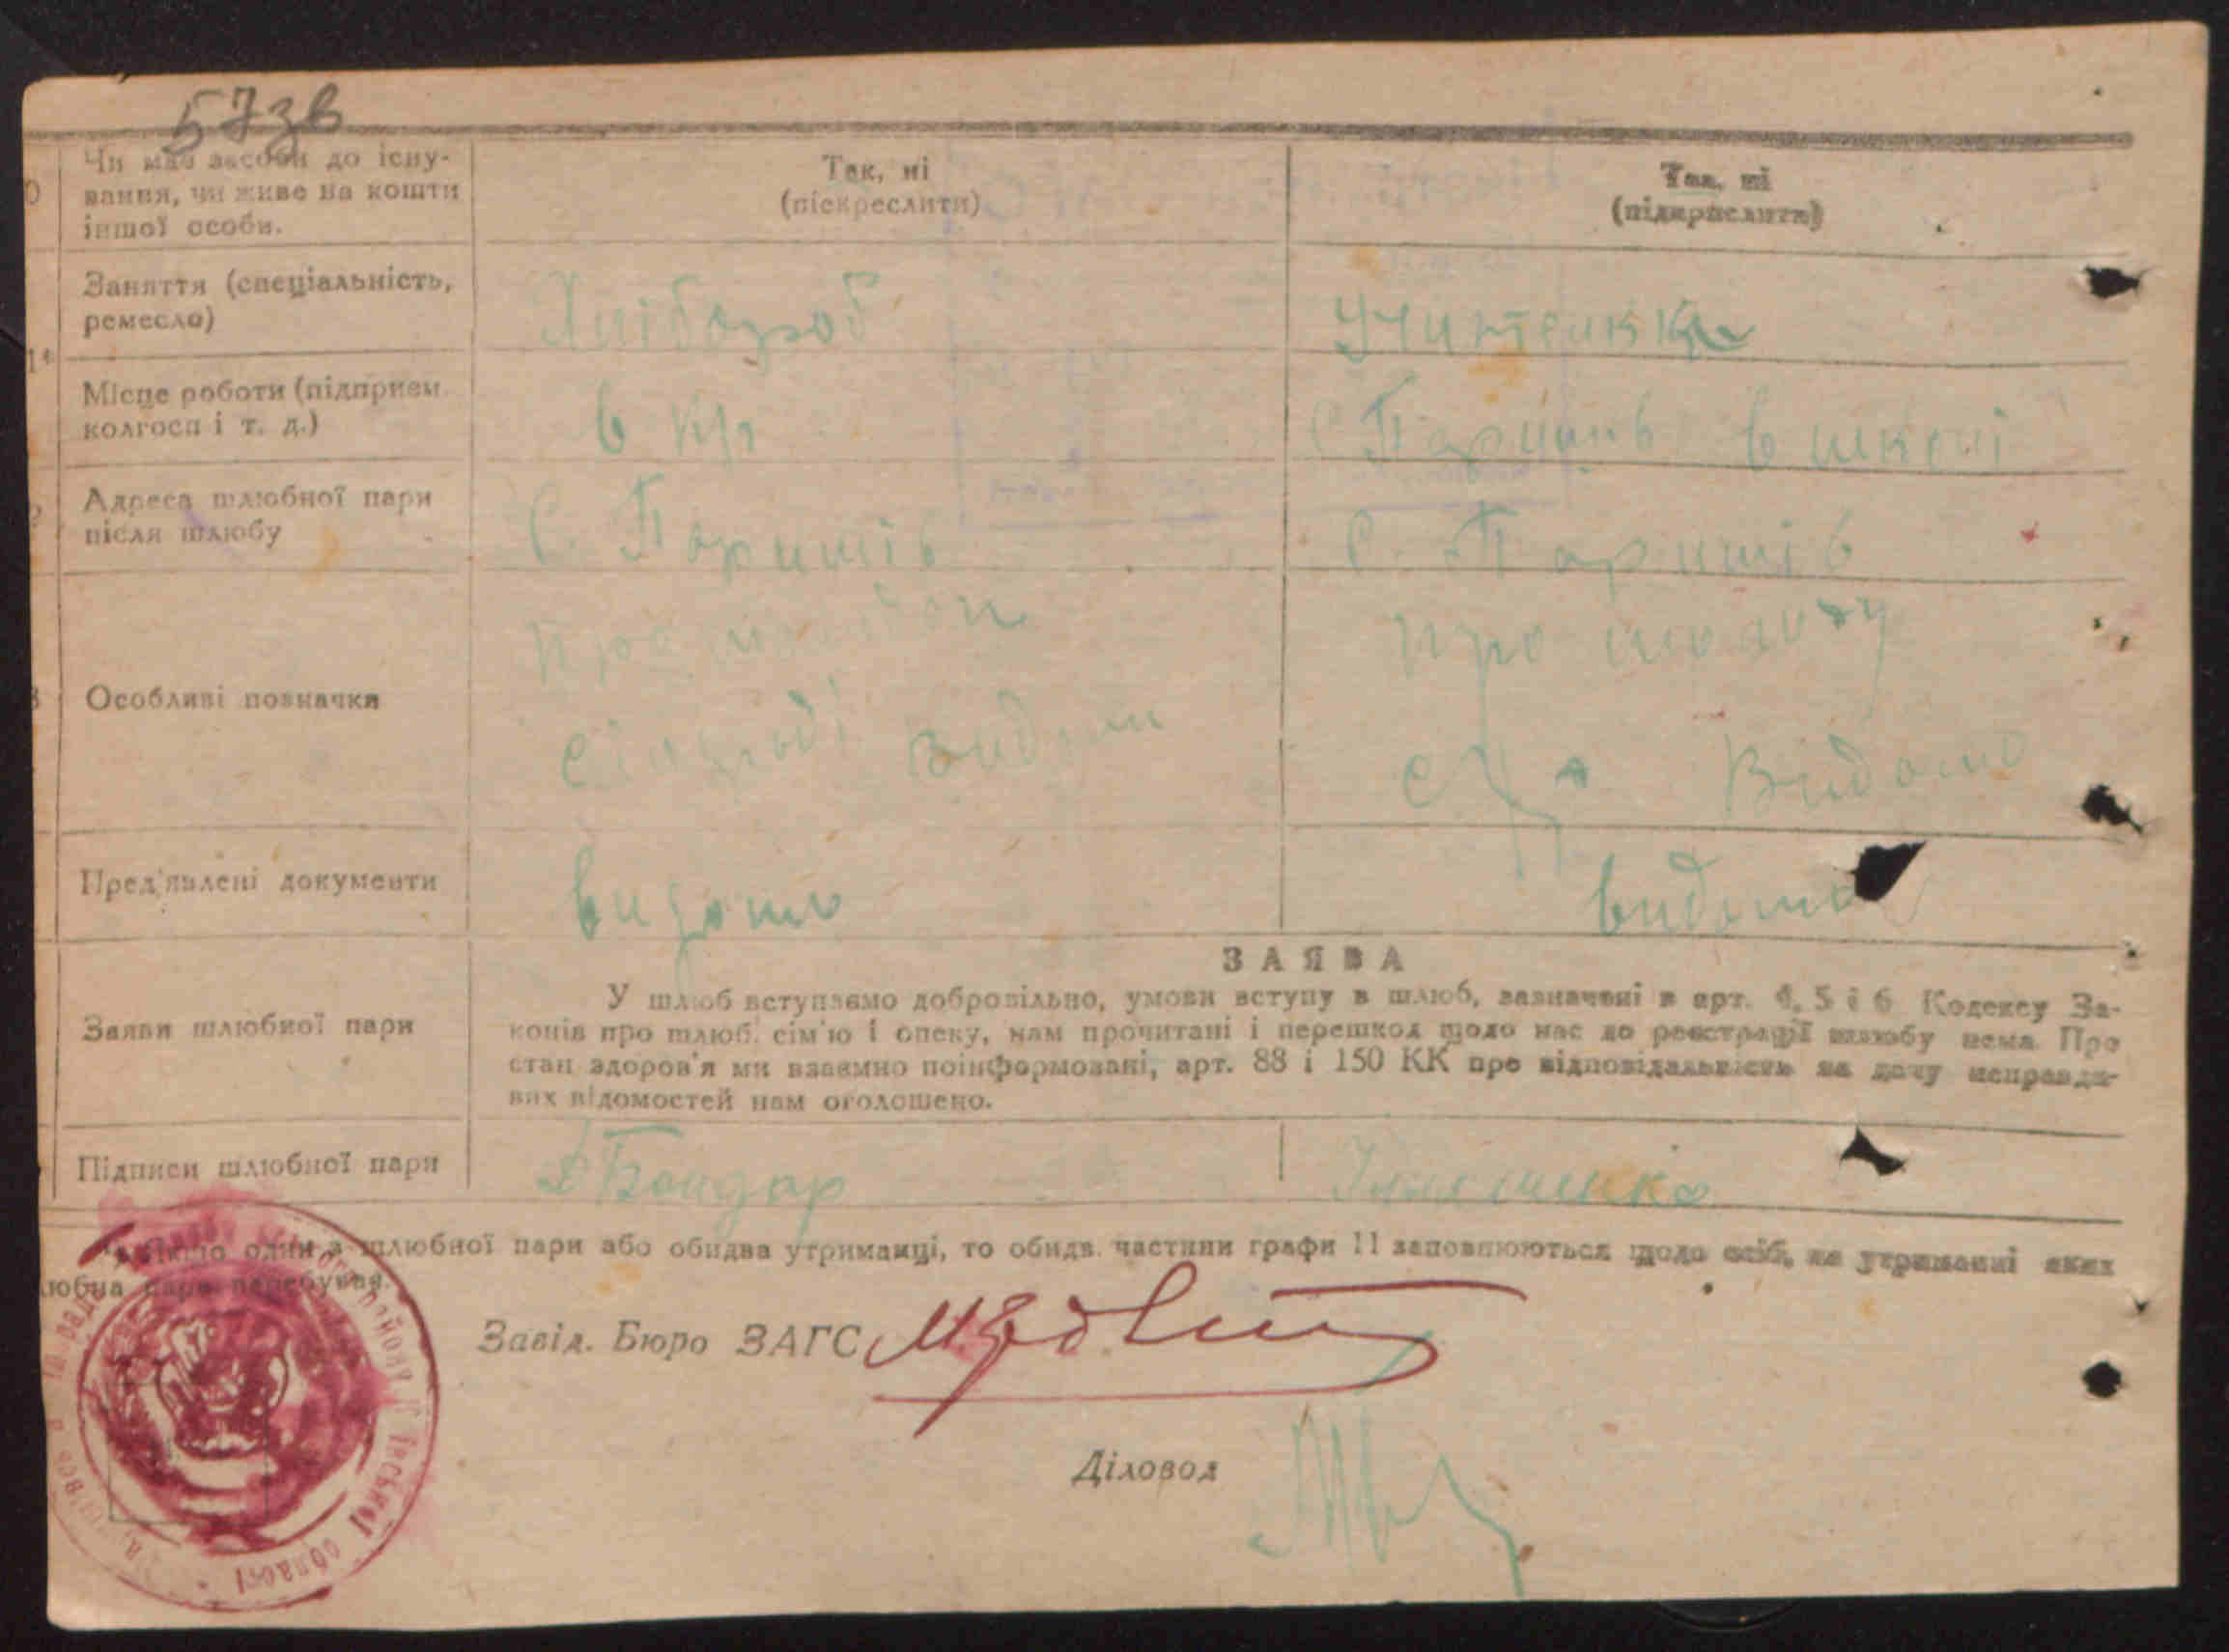 57зв
Чи має засоби до існу-
вання, чи живе на кошти
іншої особи.
Так, ні
(піскреслити)
Так, ні
(підкреслити)
Заняття (спеціальність,
ремесло)
Хлібороб
Учителька
Місце роботи (підприєм.
колгосп і т. д.)
в к/г
в школі
Адреса шлюбної пари
після шлюбу
С. Паришів
С. Паришів
Особливі позначки
про
видани
про молоду
Видано
Пред'явлені документи
видано
видано
Заяви шлюбної пари
ЗАЯВА
У шлюб вступаємо добровільно, умови вступу в шлюб, зазначені в арт. 4, 5 і 6 Кодексу За-
конів про шлюб, сім'ю і опеку, нам прочитані і перешкод щодо нас до реєстрації шлюбу нема. Про
стан здоров'я ми взаємно поінформовані, арт. 88 і 150 КК про відповідальність за дачу неправди-
вих відомостей нам оголошено.
Підписи шлюбної пари
Бондар
Якщо один з шлюбної пари або обидва утриманці, то обидв. частини графи 11 заповнюються щодо осіб, на утриманні яких
любна пара перебуває.
Завід. Бюро ЗАГС
Діловод
району
області